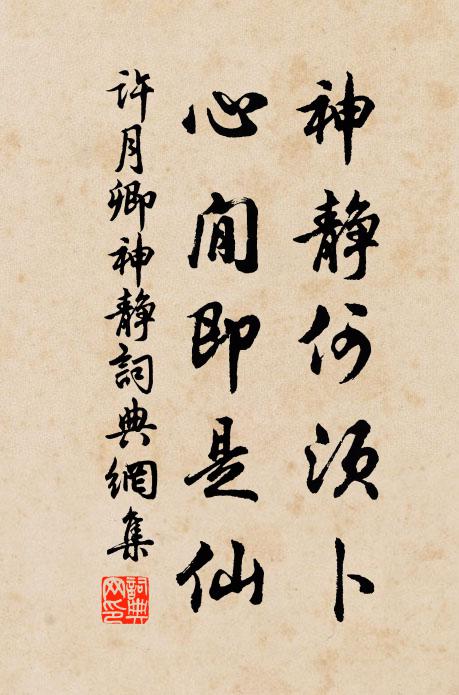 神静何須卜
心閒即是仙
許月卿神静詞典網集
詞典
网印